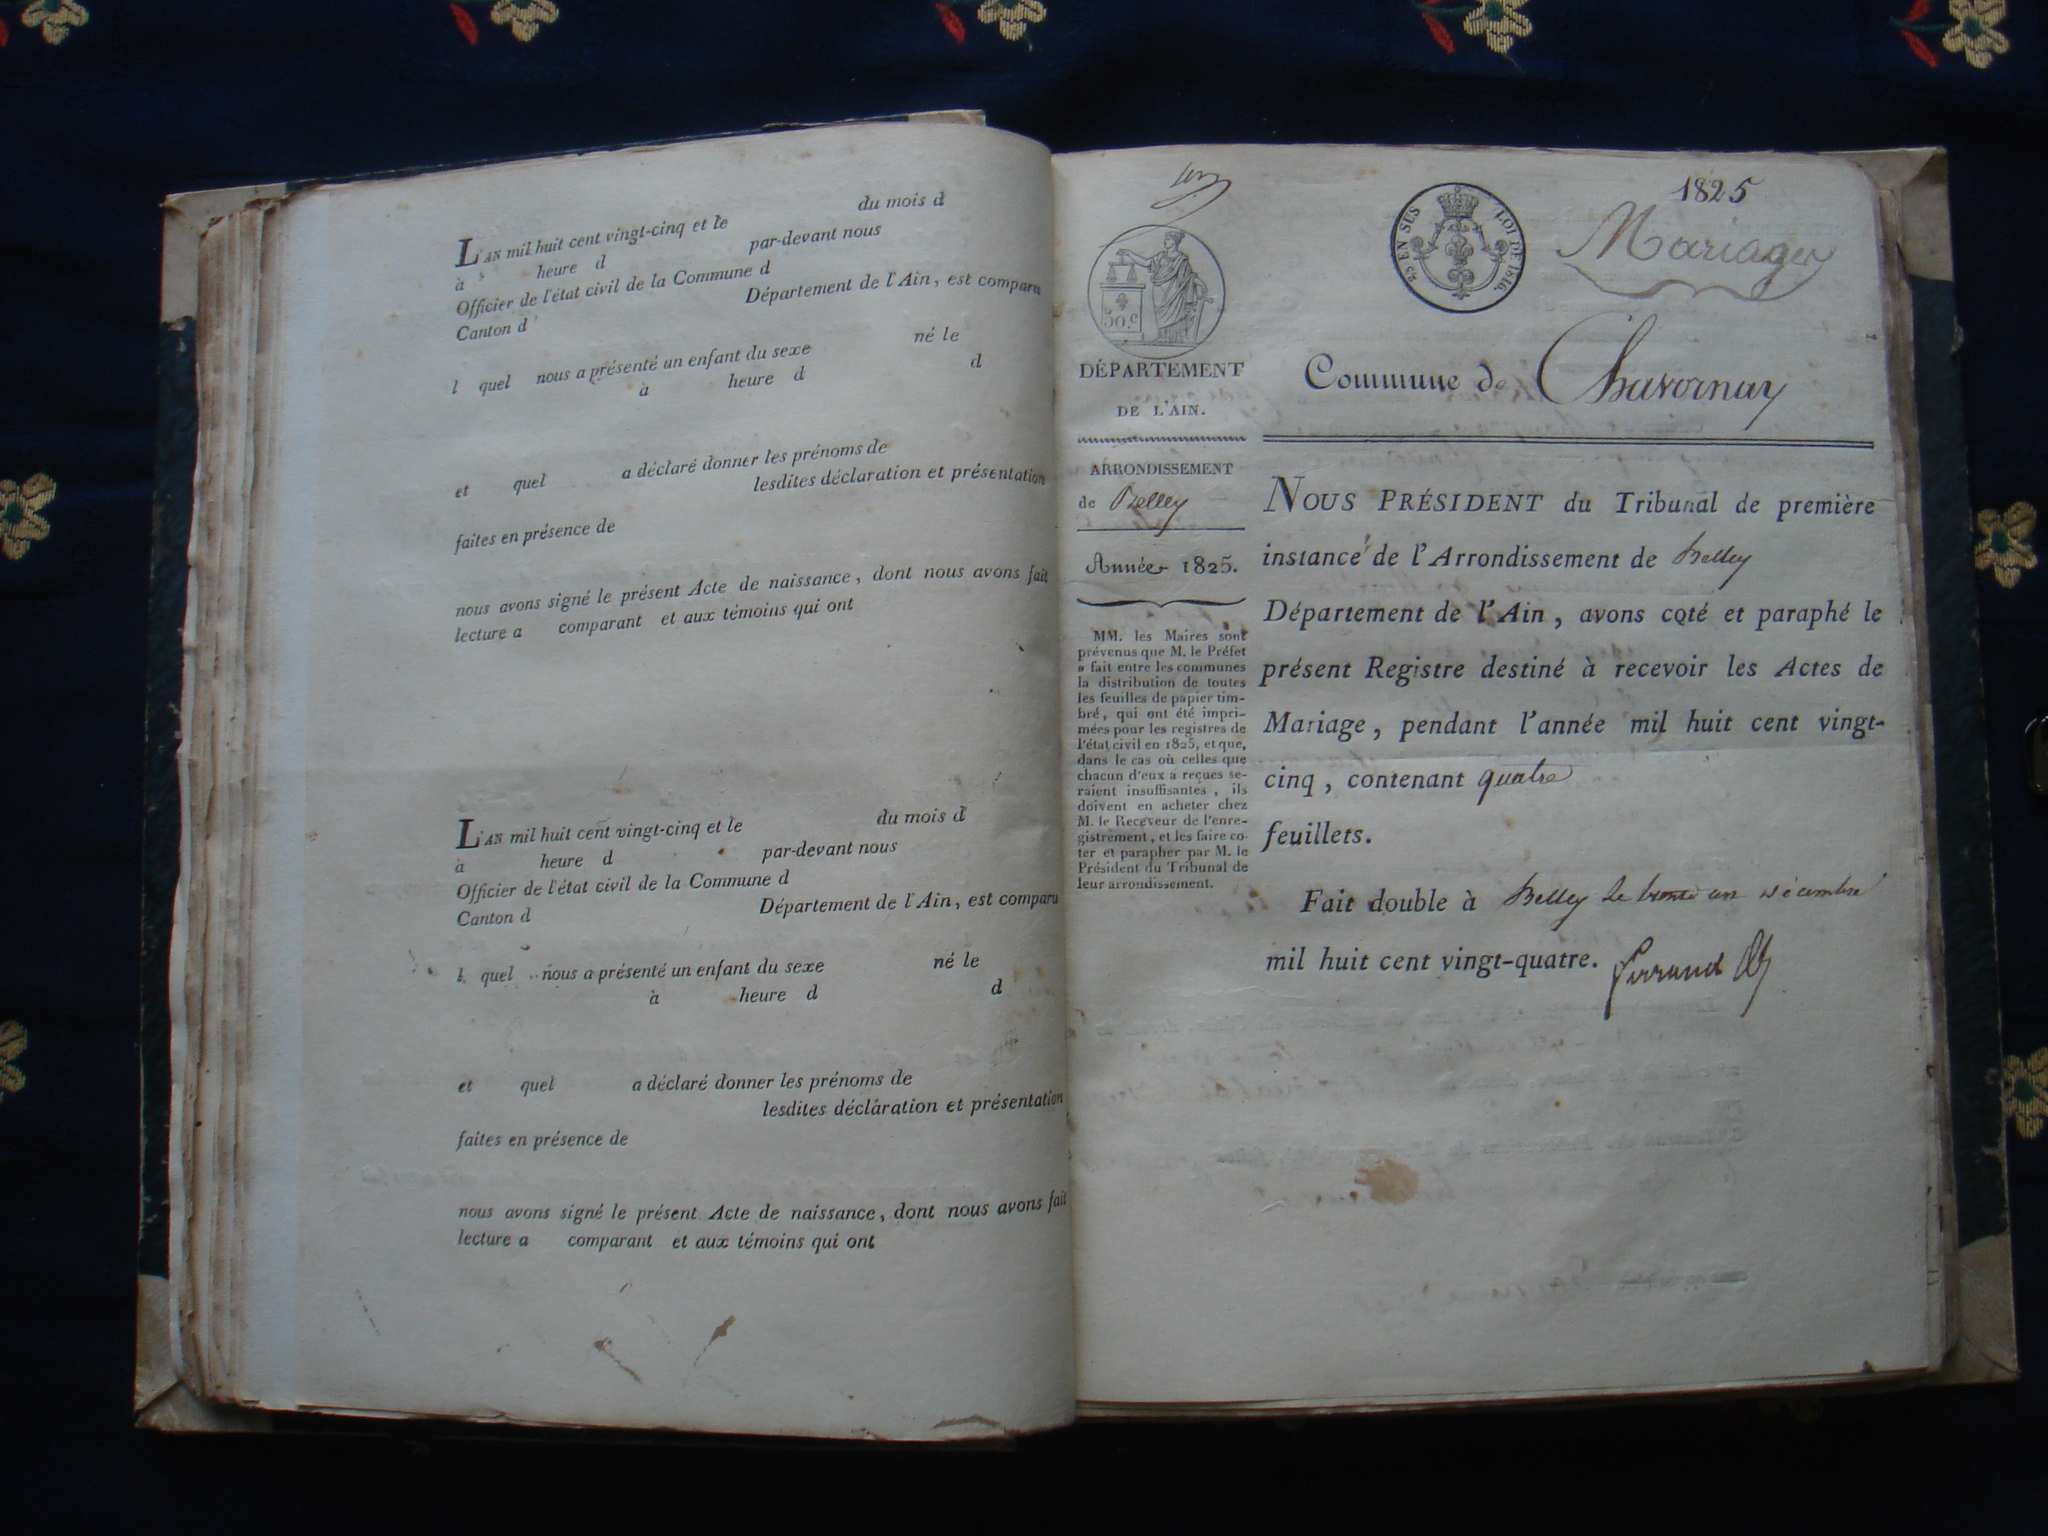 L'AN mil huit cent vingt-cinq et le du mois d
à heure d par-devant nous
Officier de l'état civil de la Commune d
Canton d Département de l'Ain, est comparu
l quel nous a présenté un enfant du sexe né le
à heure d d
et quel a déclaré donner les prénoms de
lesdites déclaration et présentation
faites en présence de
nous avons signé le présent Acte de naissance, dont nous avons fait
lecture a comparant et aux témoins qui ont
L'AN mil huit cent vingt-cinq et le du mois d
à heure d par-devant nous
Officier de l'état civil de la Commune d
Canton d Département de l'Ain, est comparu
l quel nous a présenté un enfant du sexe né le
à heure d d
et quel a déclaré donner les prénoms de
lesdites déclaration et présentation
faites en présence de
nous avons signé le présent Acte de naissance, dont nous avons fait
lecture a comparant et aux témoins qui ont
50.c
DÉPARTEMENT
DE L'AIN.
ARRONDISSEMENT
de Belley
Année 1825.
MM. les Maires sont
prévenus que M. le Préfet
a fait entre les communes
la distribution de toutes
les feuilles de papier tim-
bré, qui ont été impri-
mées pour les registres de
l'état civil en 1825, et que,
dans le cas où celles que
chacun d'eux a reçues se-
raient insuffisantes, ils
doivent en acheter chez
M. le Receveur de l'enre-
gistrement, et les faire co-
ter et parapher par M. le
Président du Tribunal de
leur arrondissement.
EN SUS LOI DE 1816.
1825
Mariages
Commune de Chavornay
NOUS PRÉSIDENT du Tribunal de première
instance de l'Arrondissement de Belley
Département de l'Ain, avons coté et paraphé le
présent Registre destiné à recevoir les Actes de
Mariage, pendant l'année mil huit cent vingt-
cinq, contenant quatre
feuillets.
Fait double à Belley le trente un décembre
mil huit cent vingt-quatre.